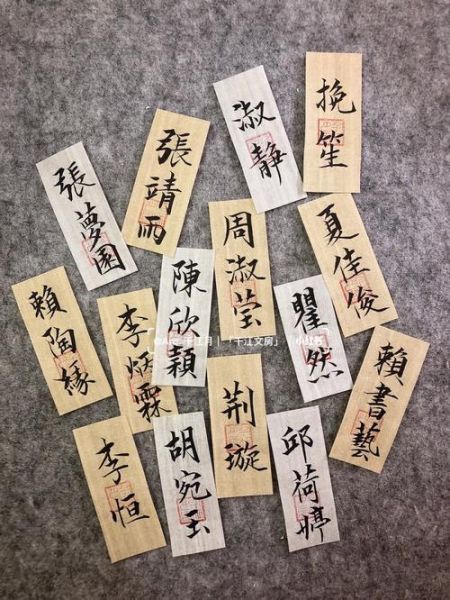 挽笙
淑静
張靖雨
張夢園
夏佳俊
周淑莹
陳欣穎
瞿然
賴陶緣
李炳霖
賴書藝
荆璇
李恒
胡宛玉
邱荷婷
千江月 | 「千江文房」 | 小红书